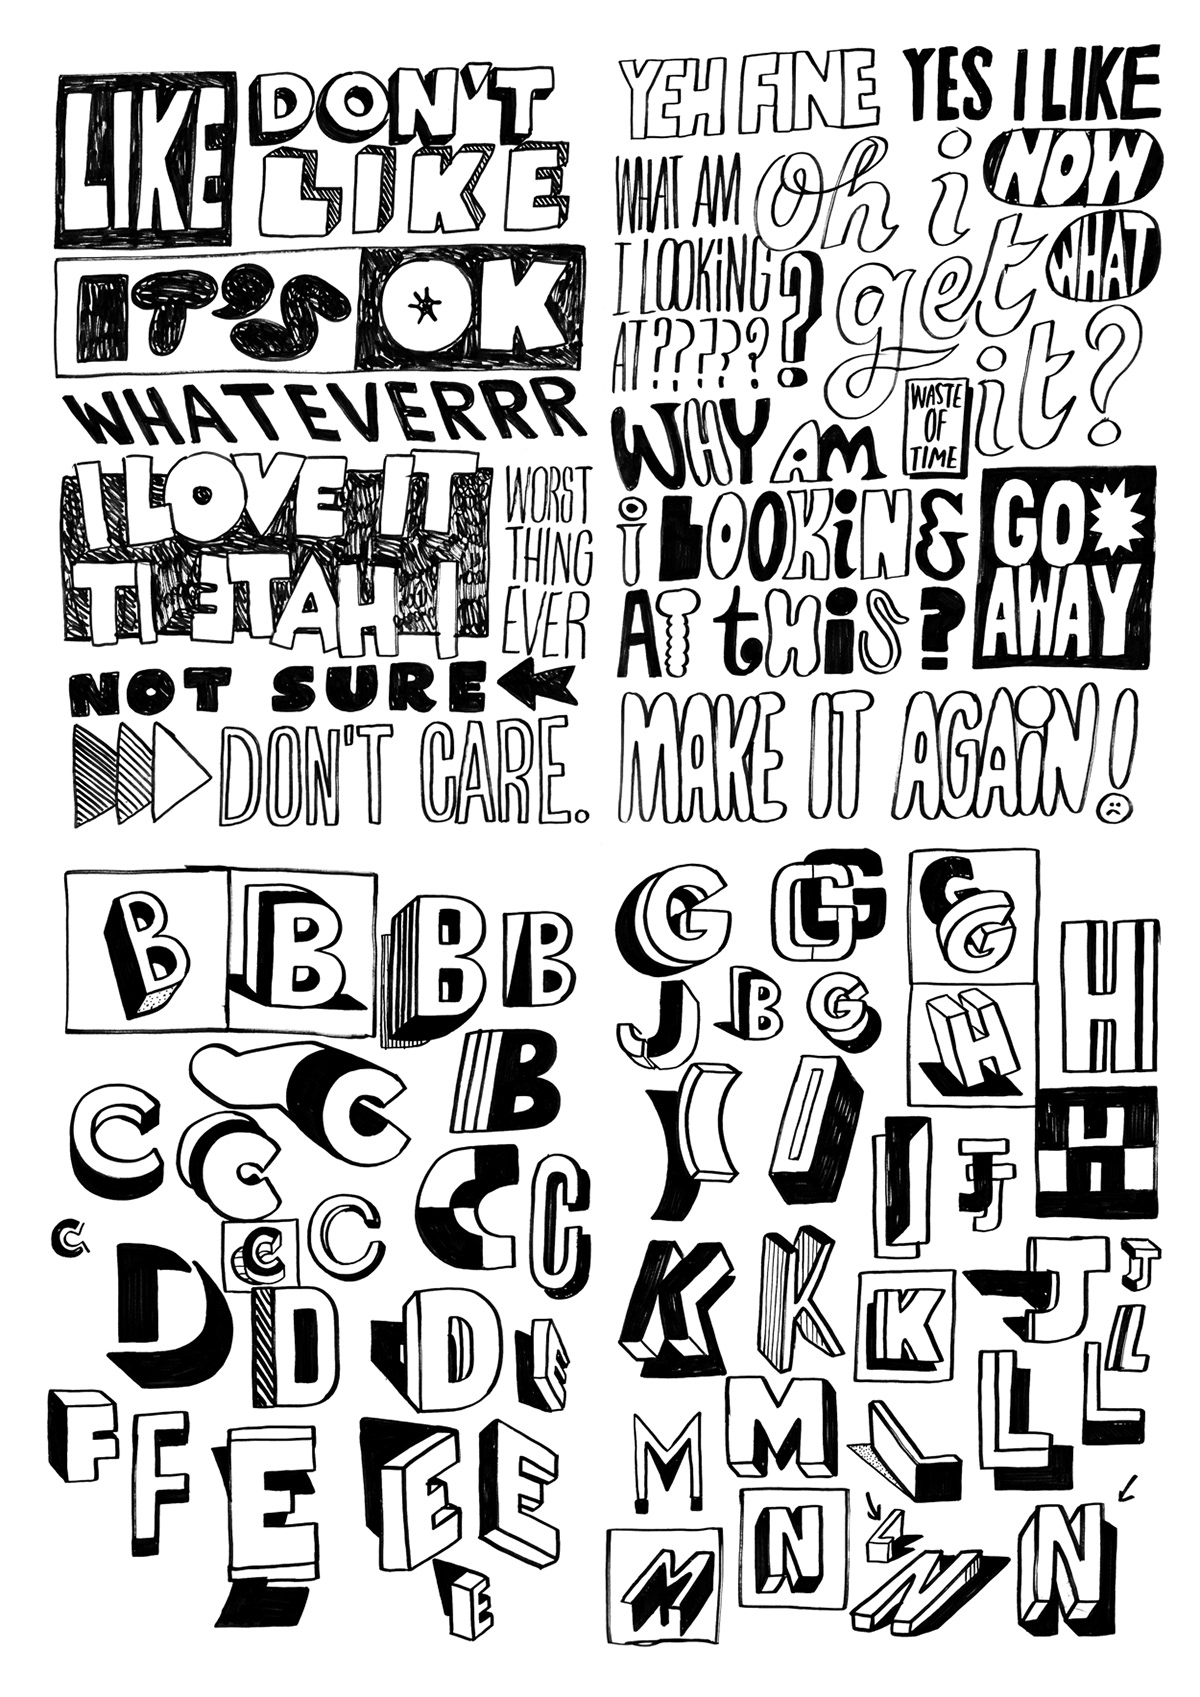 LIKE
DON'T
LIKE
IT'S OK
WHATEVERRR
I LOVE IT
TI ETAH I
WORST
THING
EVER
NOT SURE
DON'T CARE.
YEH FINE
YES I LIKE
WHAT AM
I LOOKiNG
AT?????
?
Oh i
get
it?
NOW
WHAT
WASTE
OF
TIME
WHY AM
i LOOKiN&
AT tHiS?
GO
AWAY
MAKE IT AGAiN!
B B B B
B
C C C
C C
C C C
D D D E
F F E E E
E
G G G G G H
J B G H
I I I J J H
K K K J J
M M L L L L
M N L N N